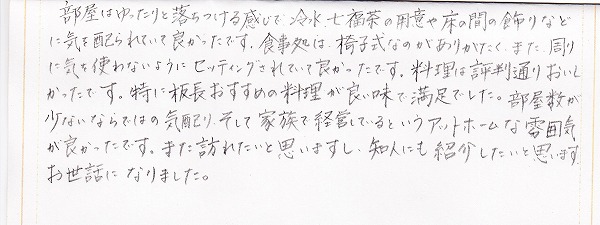 部屋はゆったりと落ちつける感じで冷水、七福茶の用意や床の間の飾りなど
に気を配られていて良かったです。食事処は、椅子式なのがありがたく、また、周り
に気を使わないようにセッティングされていて良かったです。料理は評判通りおいし
かったです。特に板長おすすめの料理が良い味で満足でした。部屋数が
少ないならではの気配り、そして家族で経営しているというアットホームな雰囲気
が良かったです。また訪れたいと思いますし、知人にも紹介したいと思います
お世話になりました。